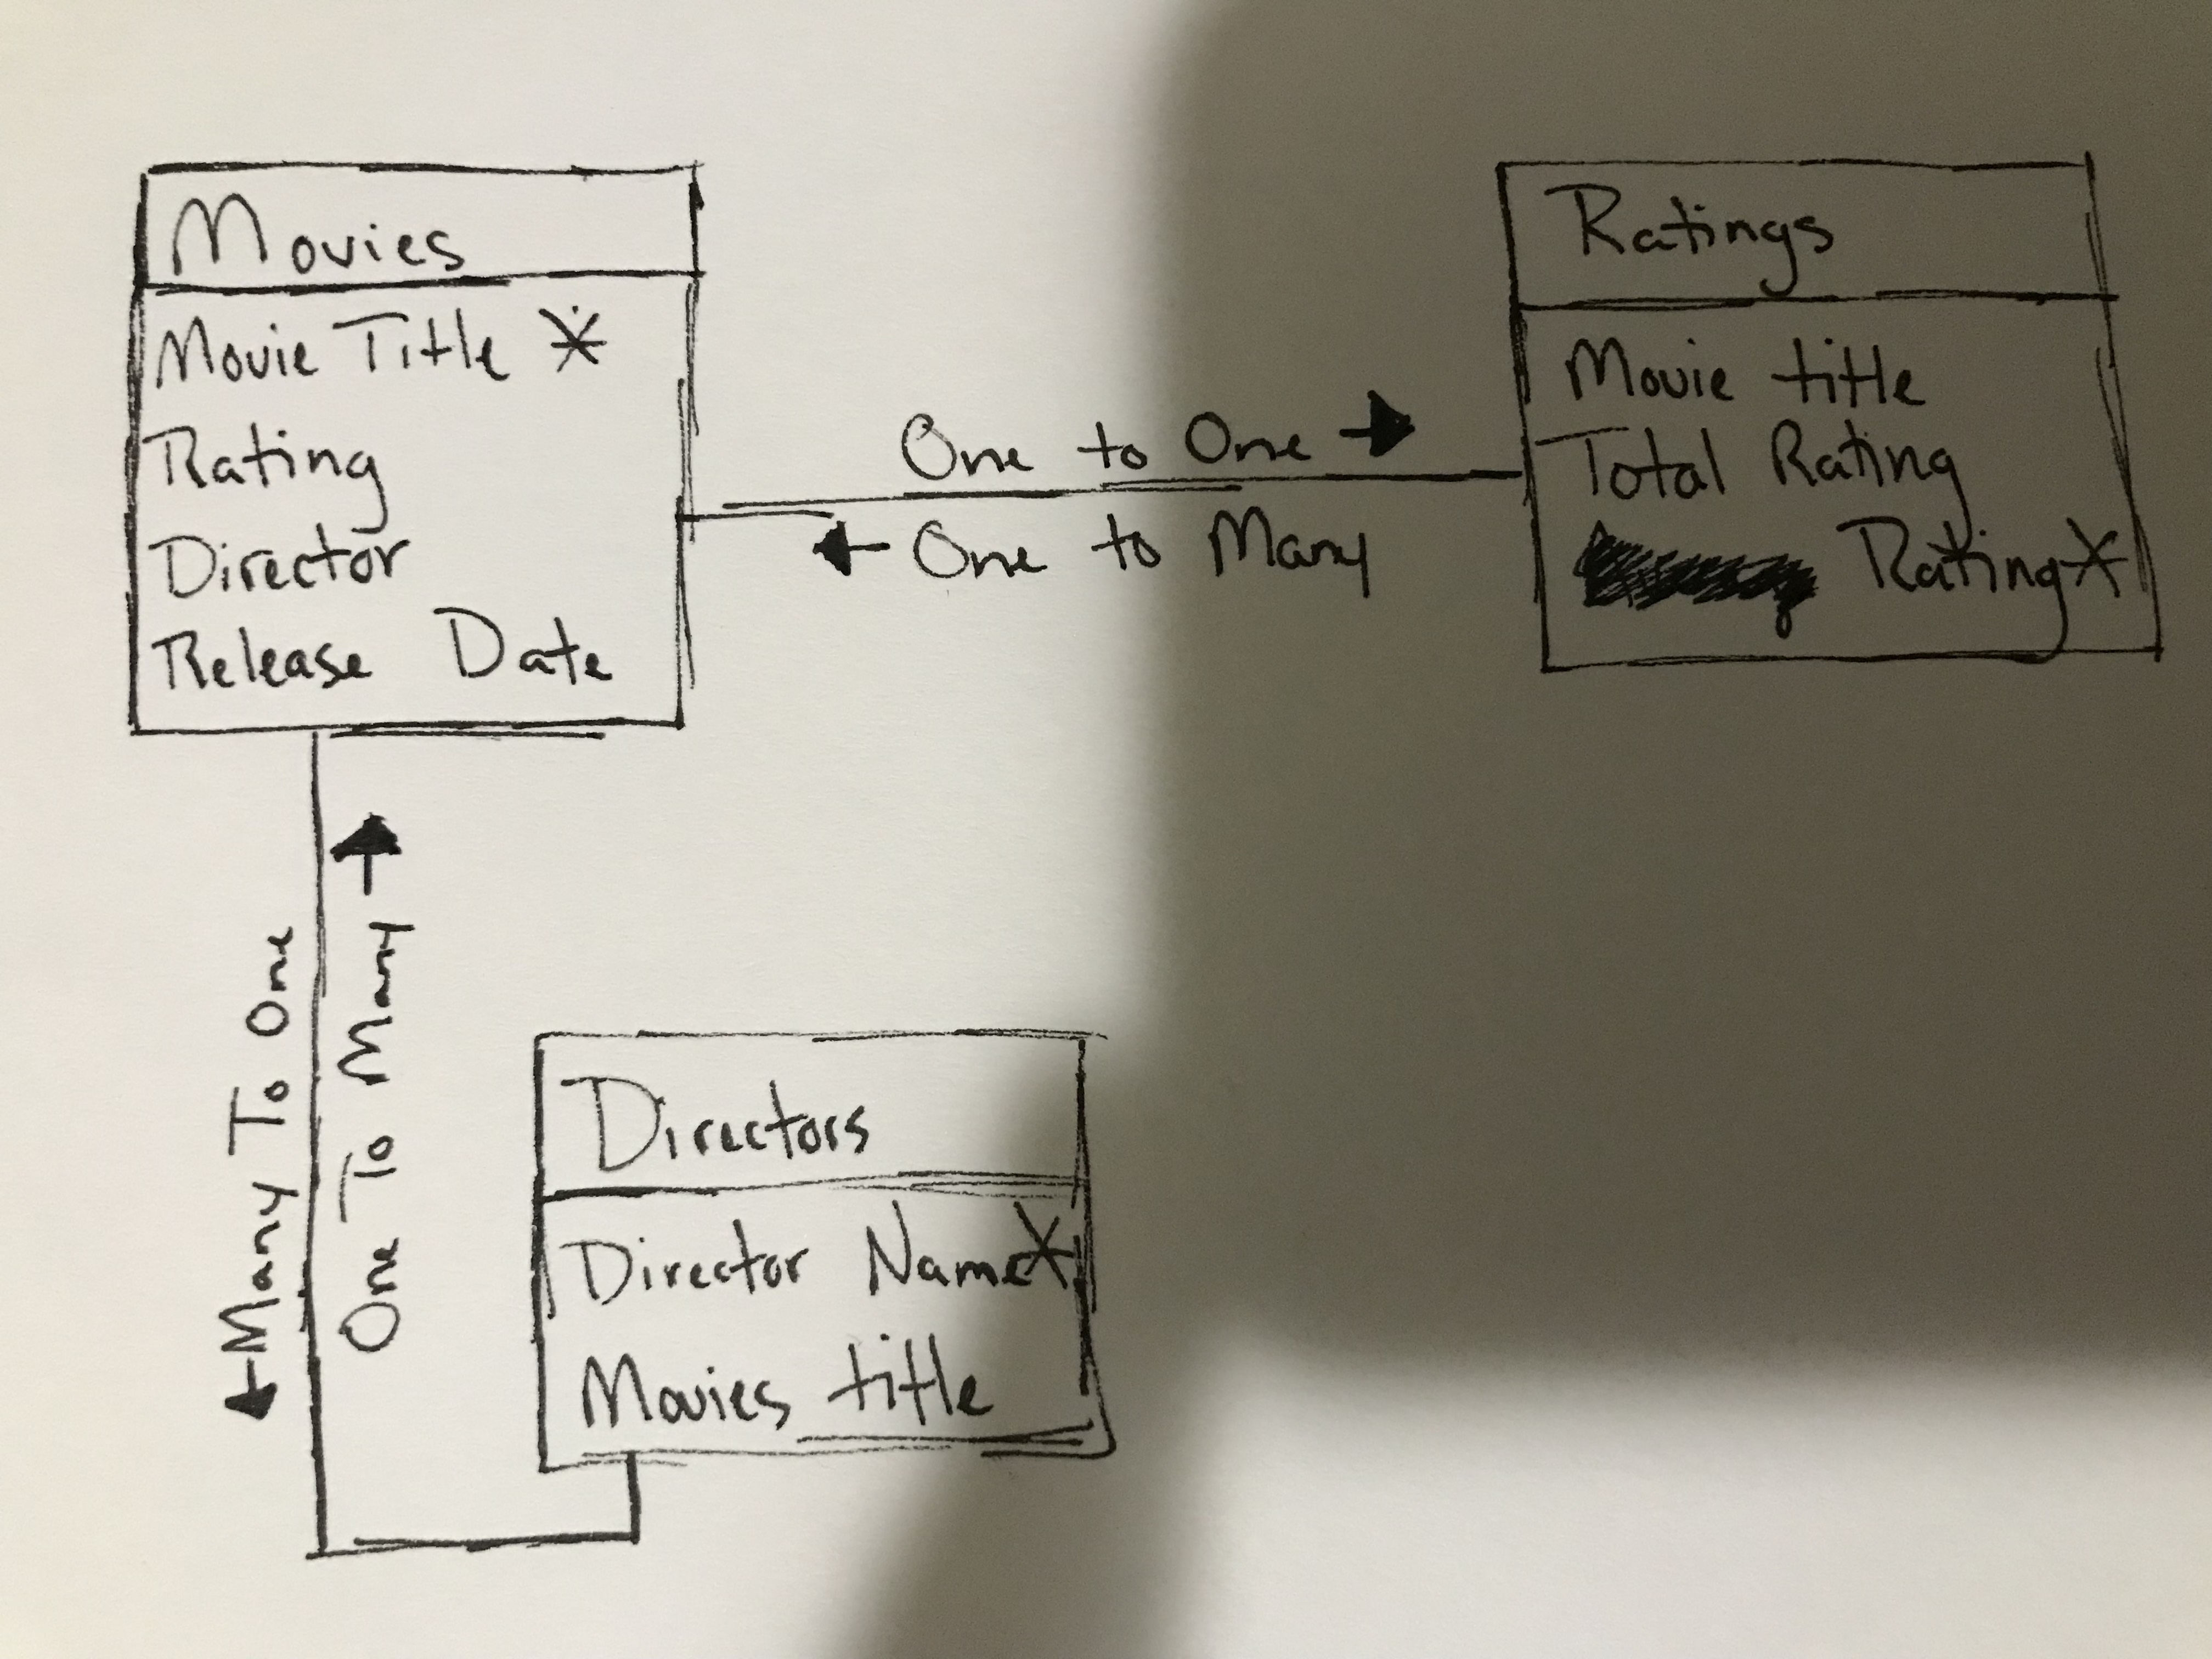 Movies
Movie Title *
Rating
Director
Release Date
One to One →
← One to Many
Ratings
Movie title
Total Rating
Rating *
← Many To One
One To Many →
Directors
Director Name *
Movies title